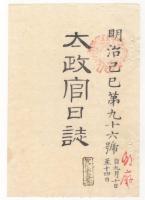 明治己巳第九十六號
自九月十日
至十四日
太政官日誌